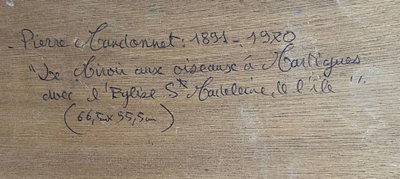 - Pierre Mandonnet : 1891 - 1970
"Le Miroir aux oiseaux à Martigues
avec l'Eglise Ste Madeleine, de l'île"
(66,5 x 55,5cm)